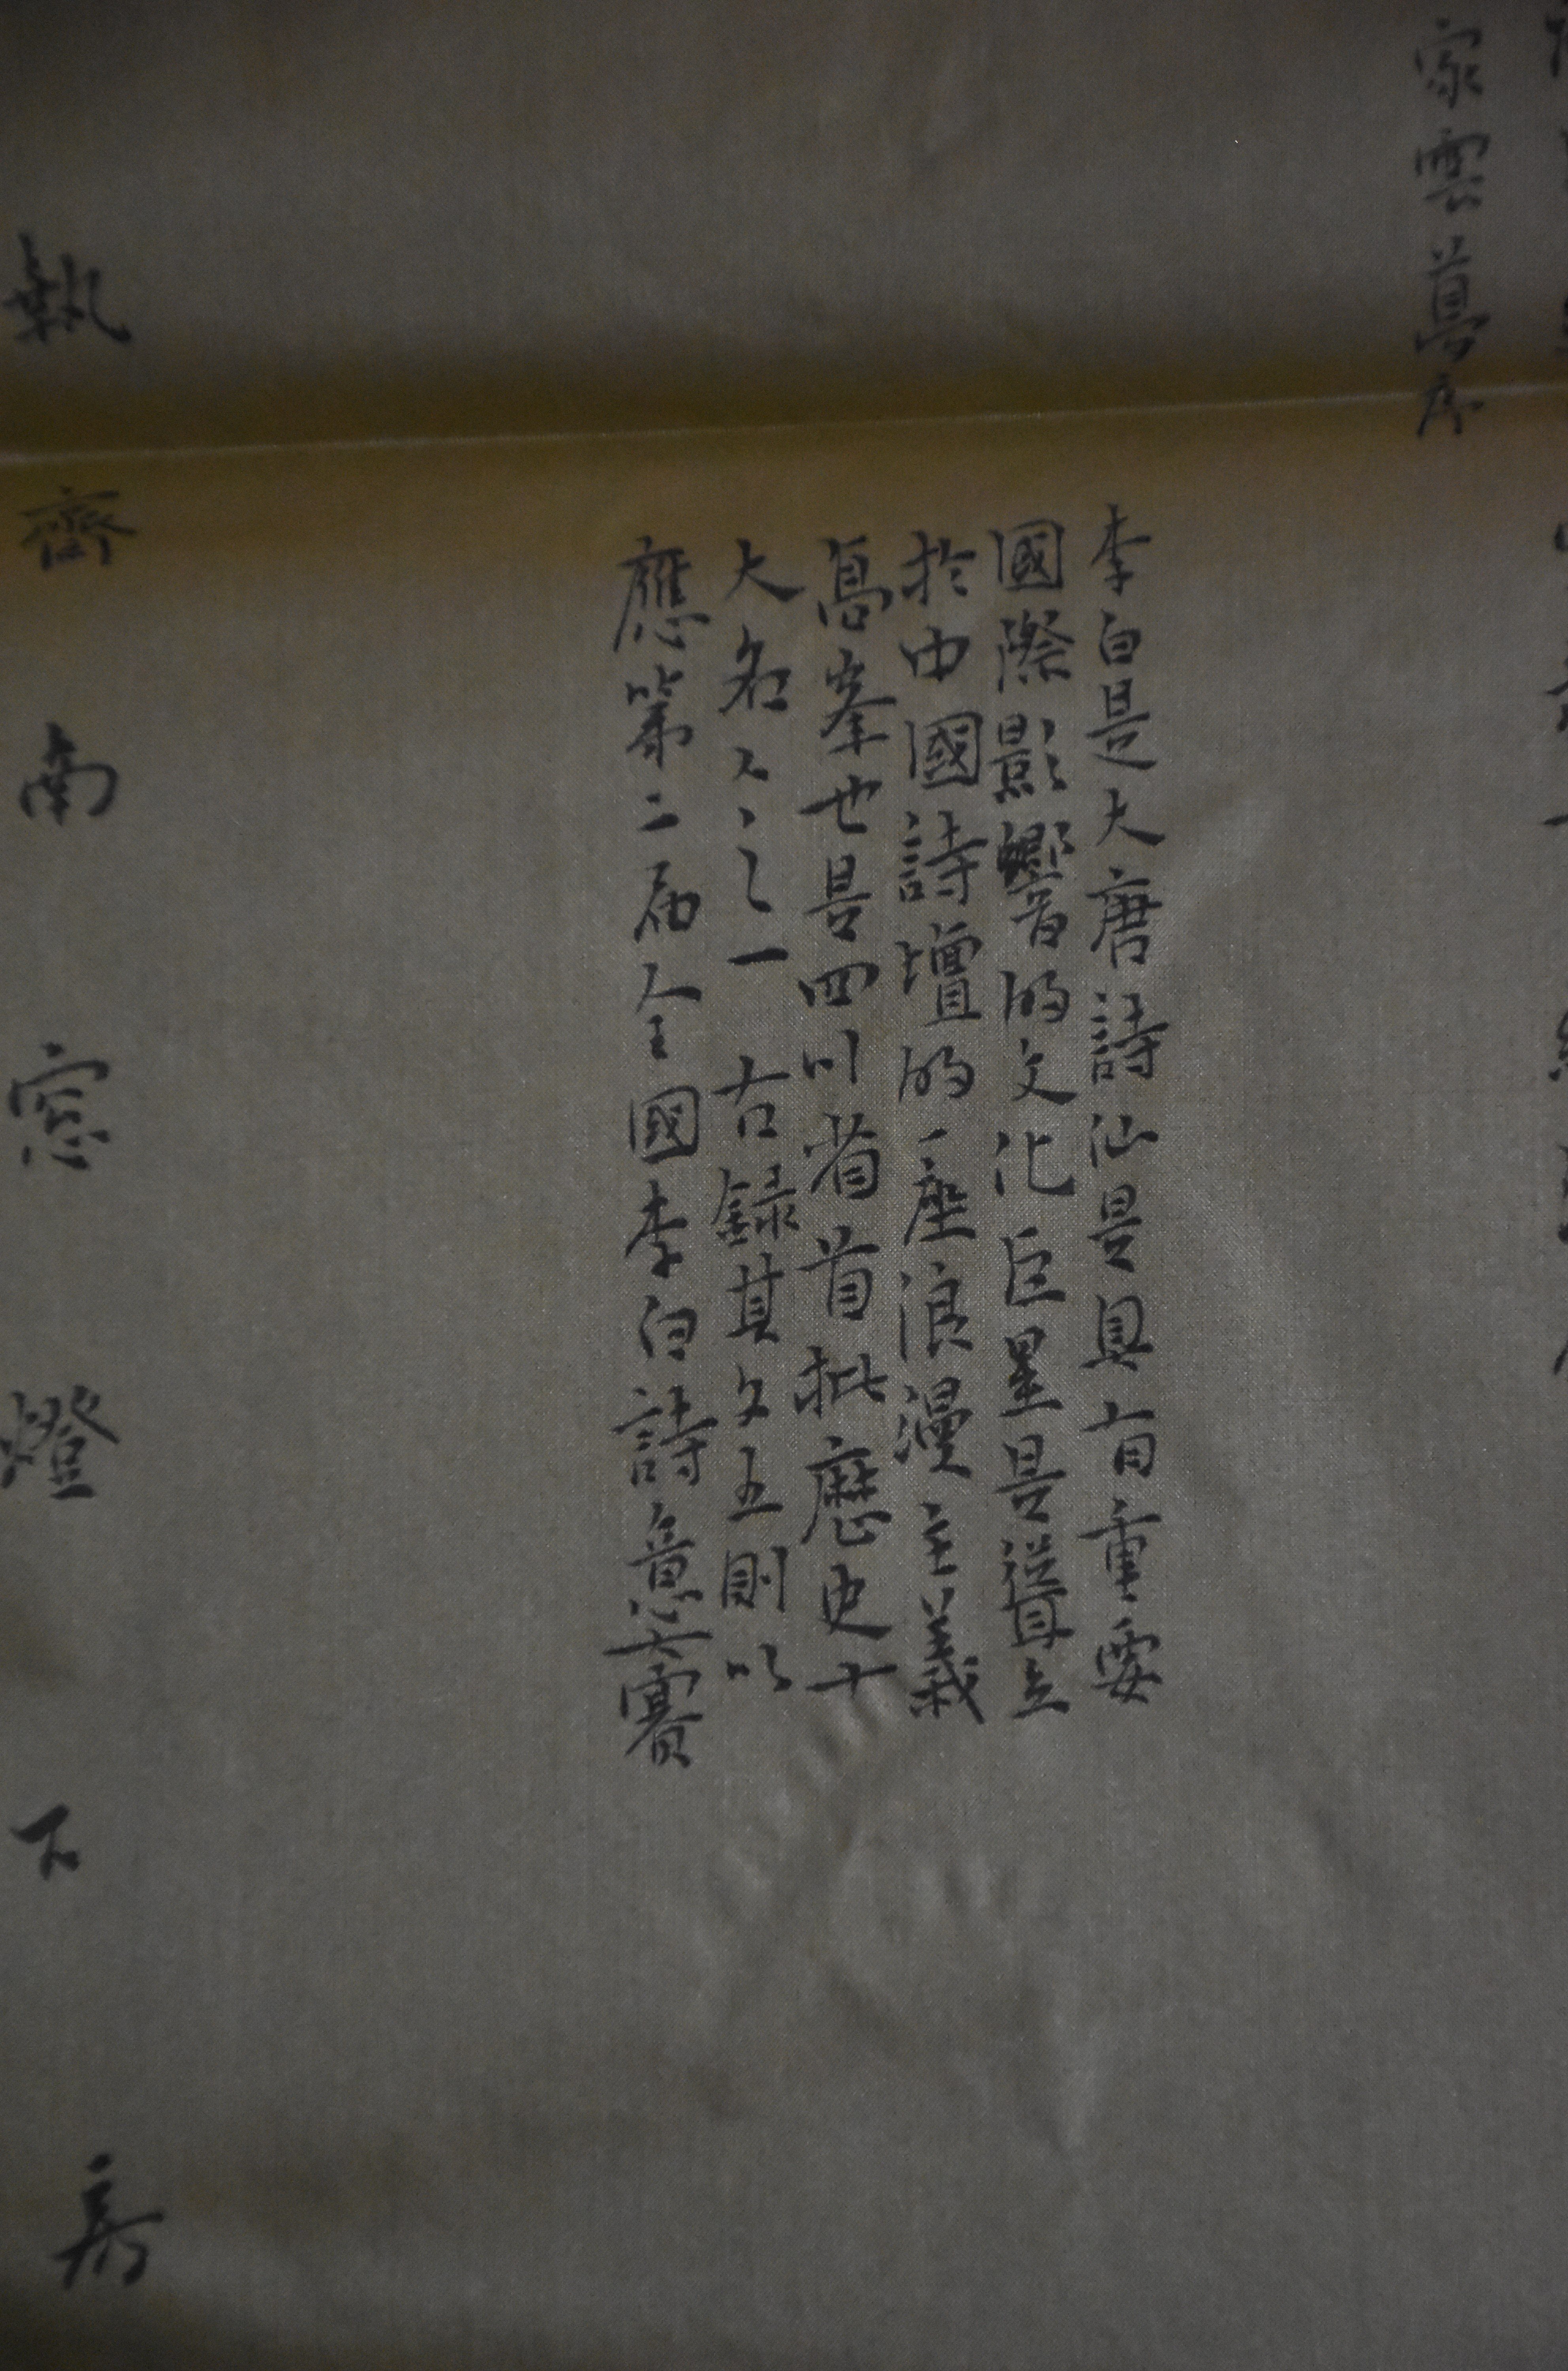 家雲夢序
李白是大唐詩仙是具有重要
國際影響的文化巨星是聳立
於中國詩壇的一座浪漫主義
高峯也是四川省首批歷史十
大名人之一 右錄其文五則以
應第二届全國李白詩意大賽
執齋南窓燈下